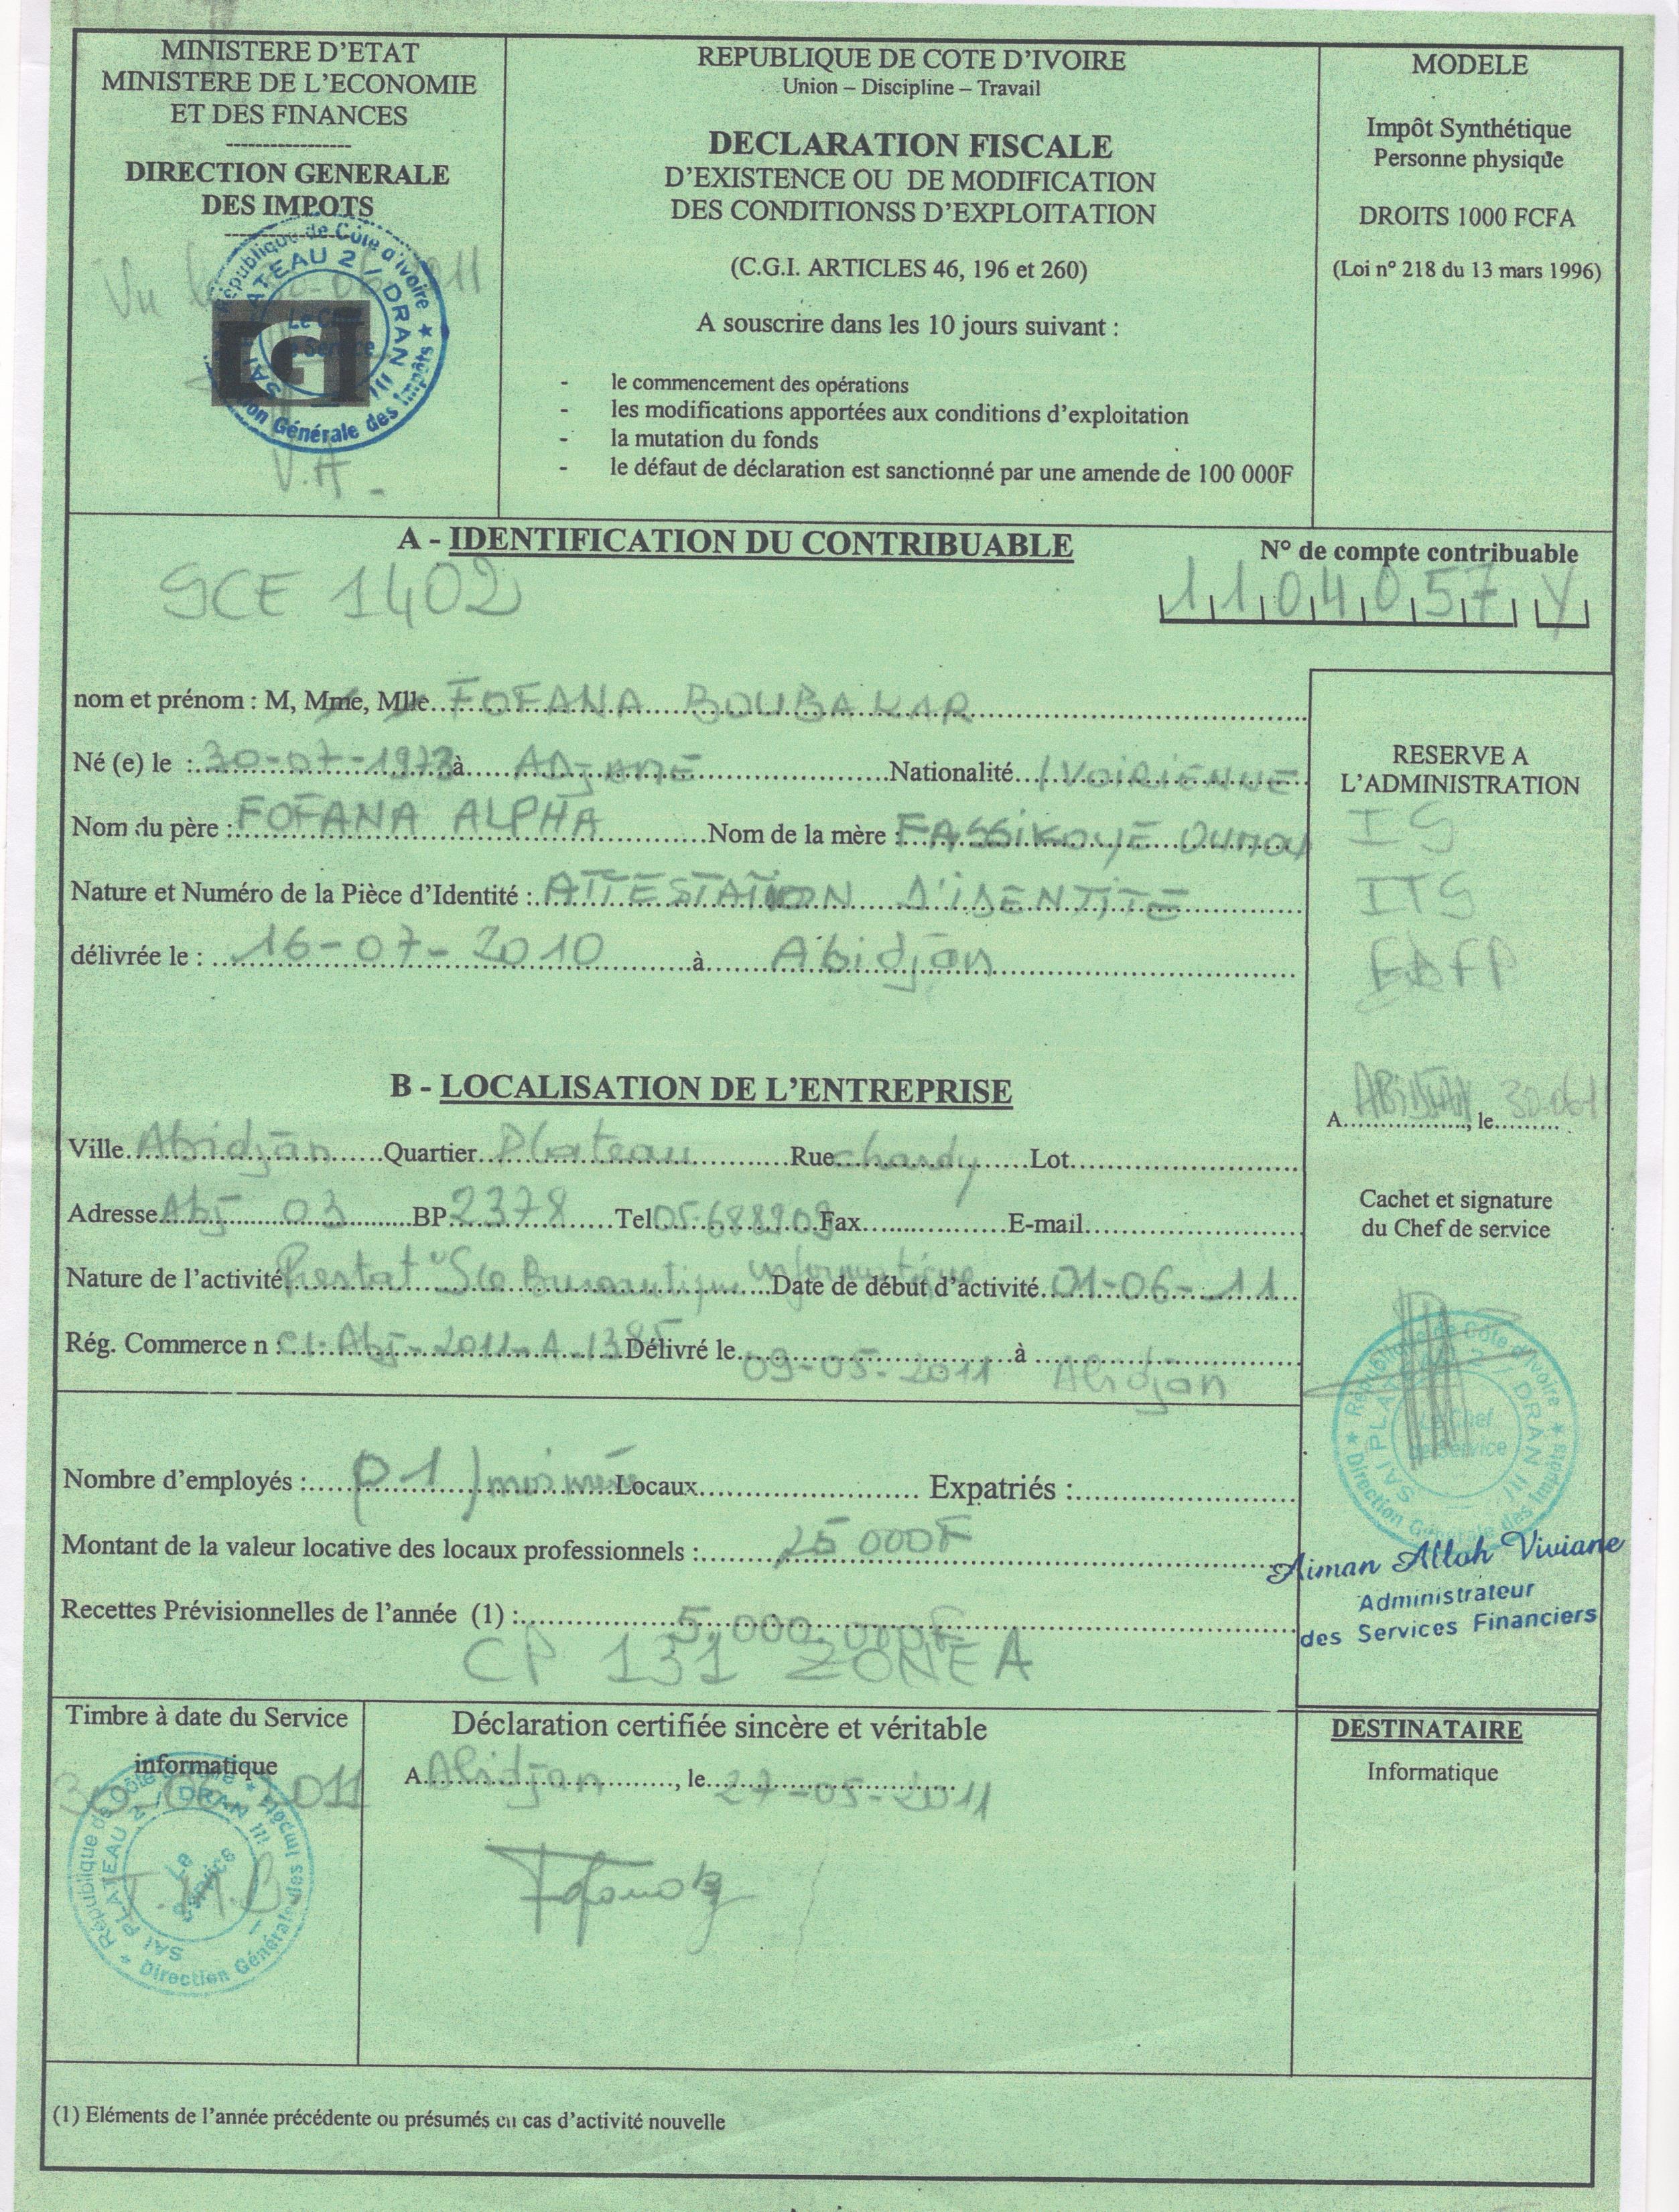 MINISTERE D'ETAT
MINISTERE DE L'ECONOMIE
ET DES FINANCES
----------------
DIRECTION GENERALE
DES IMPOTS
----------------
Vu le 30-06-2011
République de Côte d'Ivoire ★
SAI PLATEAU 2 / DRAN III
Direction Générale des Impôts
V.A -
REPUBLIQUE DE COTE D'IVOIRE
Union – Discipline – Travail
DECLARATION FISCALE
D'EXISTENCE OU DE MODIFICATION
DES CONDITIONSS D'EXPLOITATION
(C.G.I. ARTICLES 46, 196 et 260)
A souscrire dans les 10 jours suivant :
- le commencement des opérations
- les modifications apportées aux conditions d'exploitation
- la mutation du fonds
- le défaut de déclaration est sanctionné par une amende de 100 000F
MODELE
Impôt Synthétique
Personne physique
DROITS 1000 FCFA
(Loi n° 218 du 13 mars 1996)
A - IDENTIFICATION DU CONTRIBUABLE
N° de compte contribuable
SCE 1402
1104057 Y
nom et prénom : M, Mme, Mlle FOFANA BOUBAKAR
Né (e) le : 30-07-1973 à ADJAME Nationalité IVOIRIENNE
Nom du père : FOFANA ALPHA Nom de la mère : FASSIKOYE OUMOU
Nature et Numéro de la Pièce d'Identité : ATTESTATION D'IDENTITE
délivrée le : 16-07-2010 à Abidjan
RESERVE A
L'ADMINISTRATION
IS
ITS
FDFP
B - LOCALISATION DE L'ENTREPRISE
A Abidjan, le 30.06.1
Ville Abidjan Quartier Plateau Rue chardy Lot
Adresse Abj 03 BP 2378 Tel 05688909 Fax E-mail
Nature de l'activité Prestat° Sce Bureautique informatique Date de début d'activité 01-06-11
Rég. Commerce n : CI-Abj-2011-A-1385 Délivré le 09-05-2011 à Abidjan
Cachet et signature
du Chef de service
République de Côte d'Ivoire ★
SAI PLATEAU 2 / DRAN III
Le Chef
de Service
Direction Générale des Impôts
Nombre d'employés : 01 moi même Locaux Expatriés :
Montant de la valeur locative des locaux professionnels : 25 000F
Recettes Prévisionnelles de l'année (1) : 5.000.000F
CP 131 ZONE A
Aiman Alloh Viviane
Administrateur
des Services Financiers
Timbre à date du Service
informatique
30-06-2011
République de Côte d'Ivoire ★
SAI PLATEAU 2 / DRAN III
Le
Service
Direction Générale des Impôts
Déclaration certifiée sincère et véritable
A Abidjan, le 27-05-2011
DESTINATAIRE
Informatique
(1) Eléments de l'année précédente ou présumés en cas d'activité nouvelle